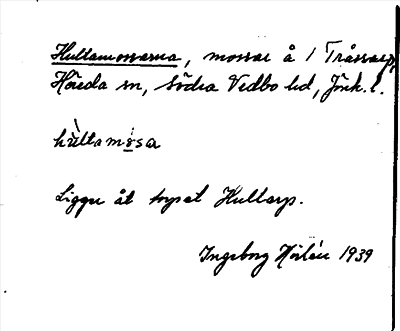 Hultamossarna, mossar å 1 Tråssarp,
Höreda sn, Södra Vedbo hd, Jönk. l.
hùltamọsa
Ligger åt torpet Hultarp.
Ingeborg Hörlén 1939